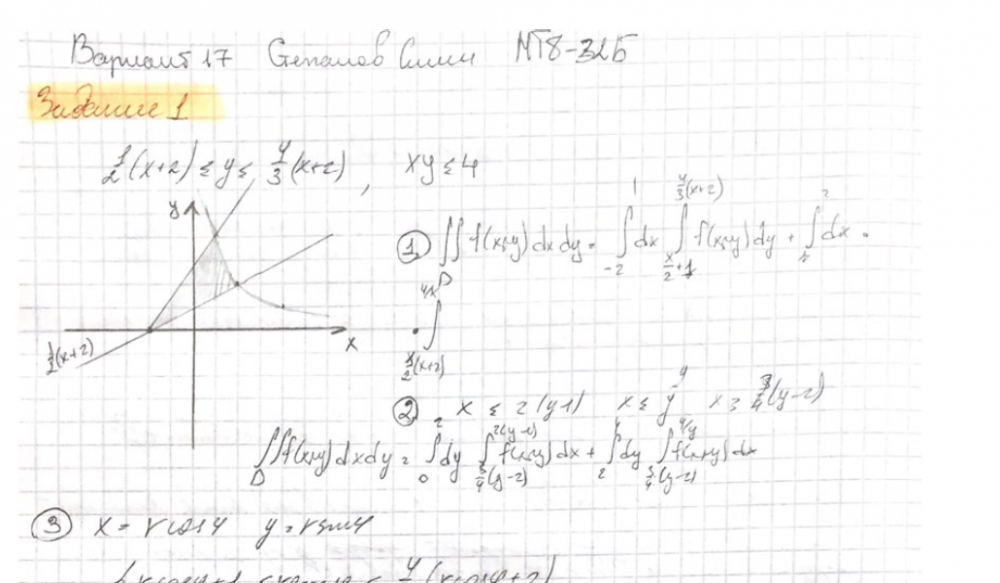 Вариант 17 Степанов МТ8-32Б
Задание 1
1/2(x+2) ≤ y ≤ 4/3(x+2), xy ≤ 4
y
x
1/2(x+2)
1. ∬_D f(x,y) dx dy = ∫_{-2}^{1} dx ∫_{x/2+1}^{4/3(x+2)} f(x,y) dy + ∫^{2} dx ·
· ∫_{(x+2)}^{4/x}
2. x ≤ 2(y-1) x ≤ 4/y x ≥ 3/4(y-2)
∬_D f(x,y) dx dy = ∫_{0}^{2} dy ∫_{3/4(y-2)}^{2(y-1)} f(x,y) dx + ∫_{2}^{4} dy ∫_{3/4(y-2)}^{4/y} f(x,y) dx
3 x = r cosφ y = r sinφ